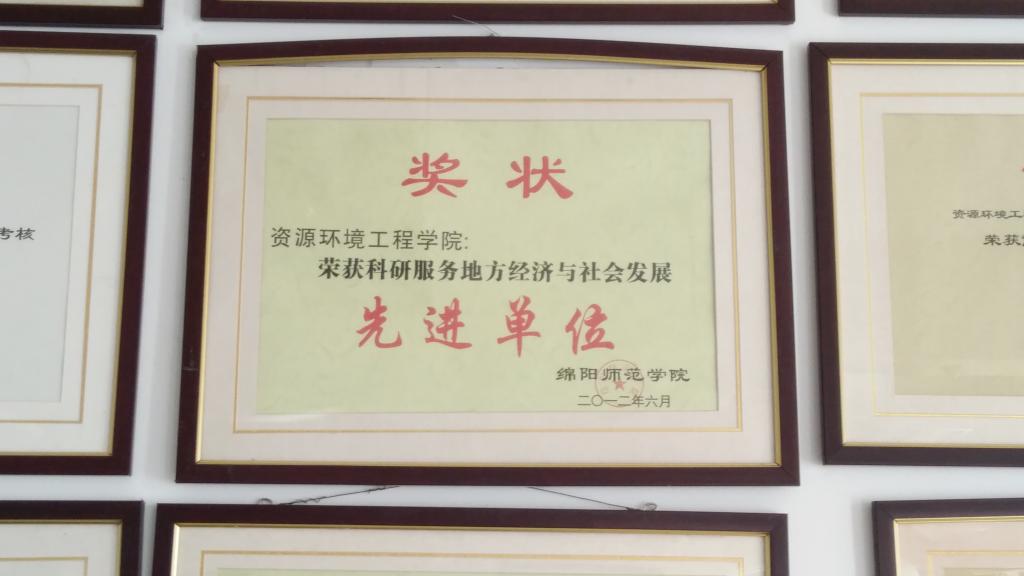 奖状
资源环境工程学院:
荣获科研服务地方经济与社会发展
先进单位
绵阳师范学院
二〇一二年六月
考核
资源环境工
荣获